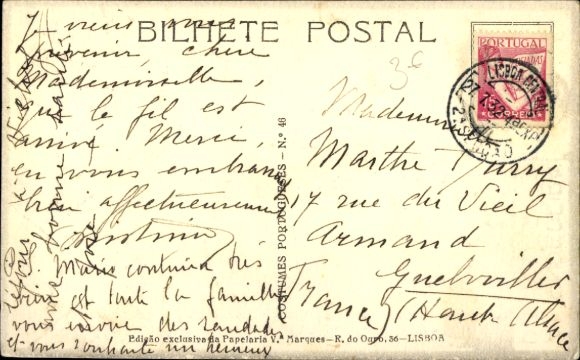 BILHETE POSTAL
Je viens vous
prévenir, chère
Mademoiselle,
que le fil est
arrivé. Merci,
en vous embrassant
bien affectueusement
Maria continua très
bien et toute la famille
vous envoie des saudades
et vous souhaite un heureux
PORTUGAL
LUSIADAS
CORREIO
LISBOA
Mademoiselle
Marthe
17 rue du Vieil
Armand
Guebwiller
France (Haute Alsace)
COSTUMES PORTUGUESES - N.º 46
Edição exclusiva da Papelaria V.ª Marques - R. do Ouro, 36 - LISBOA